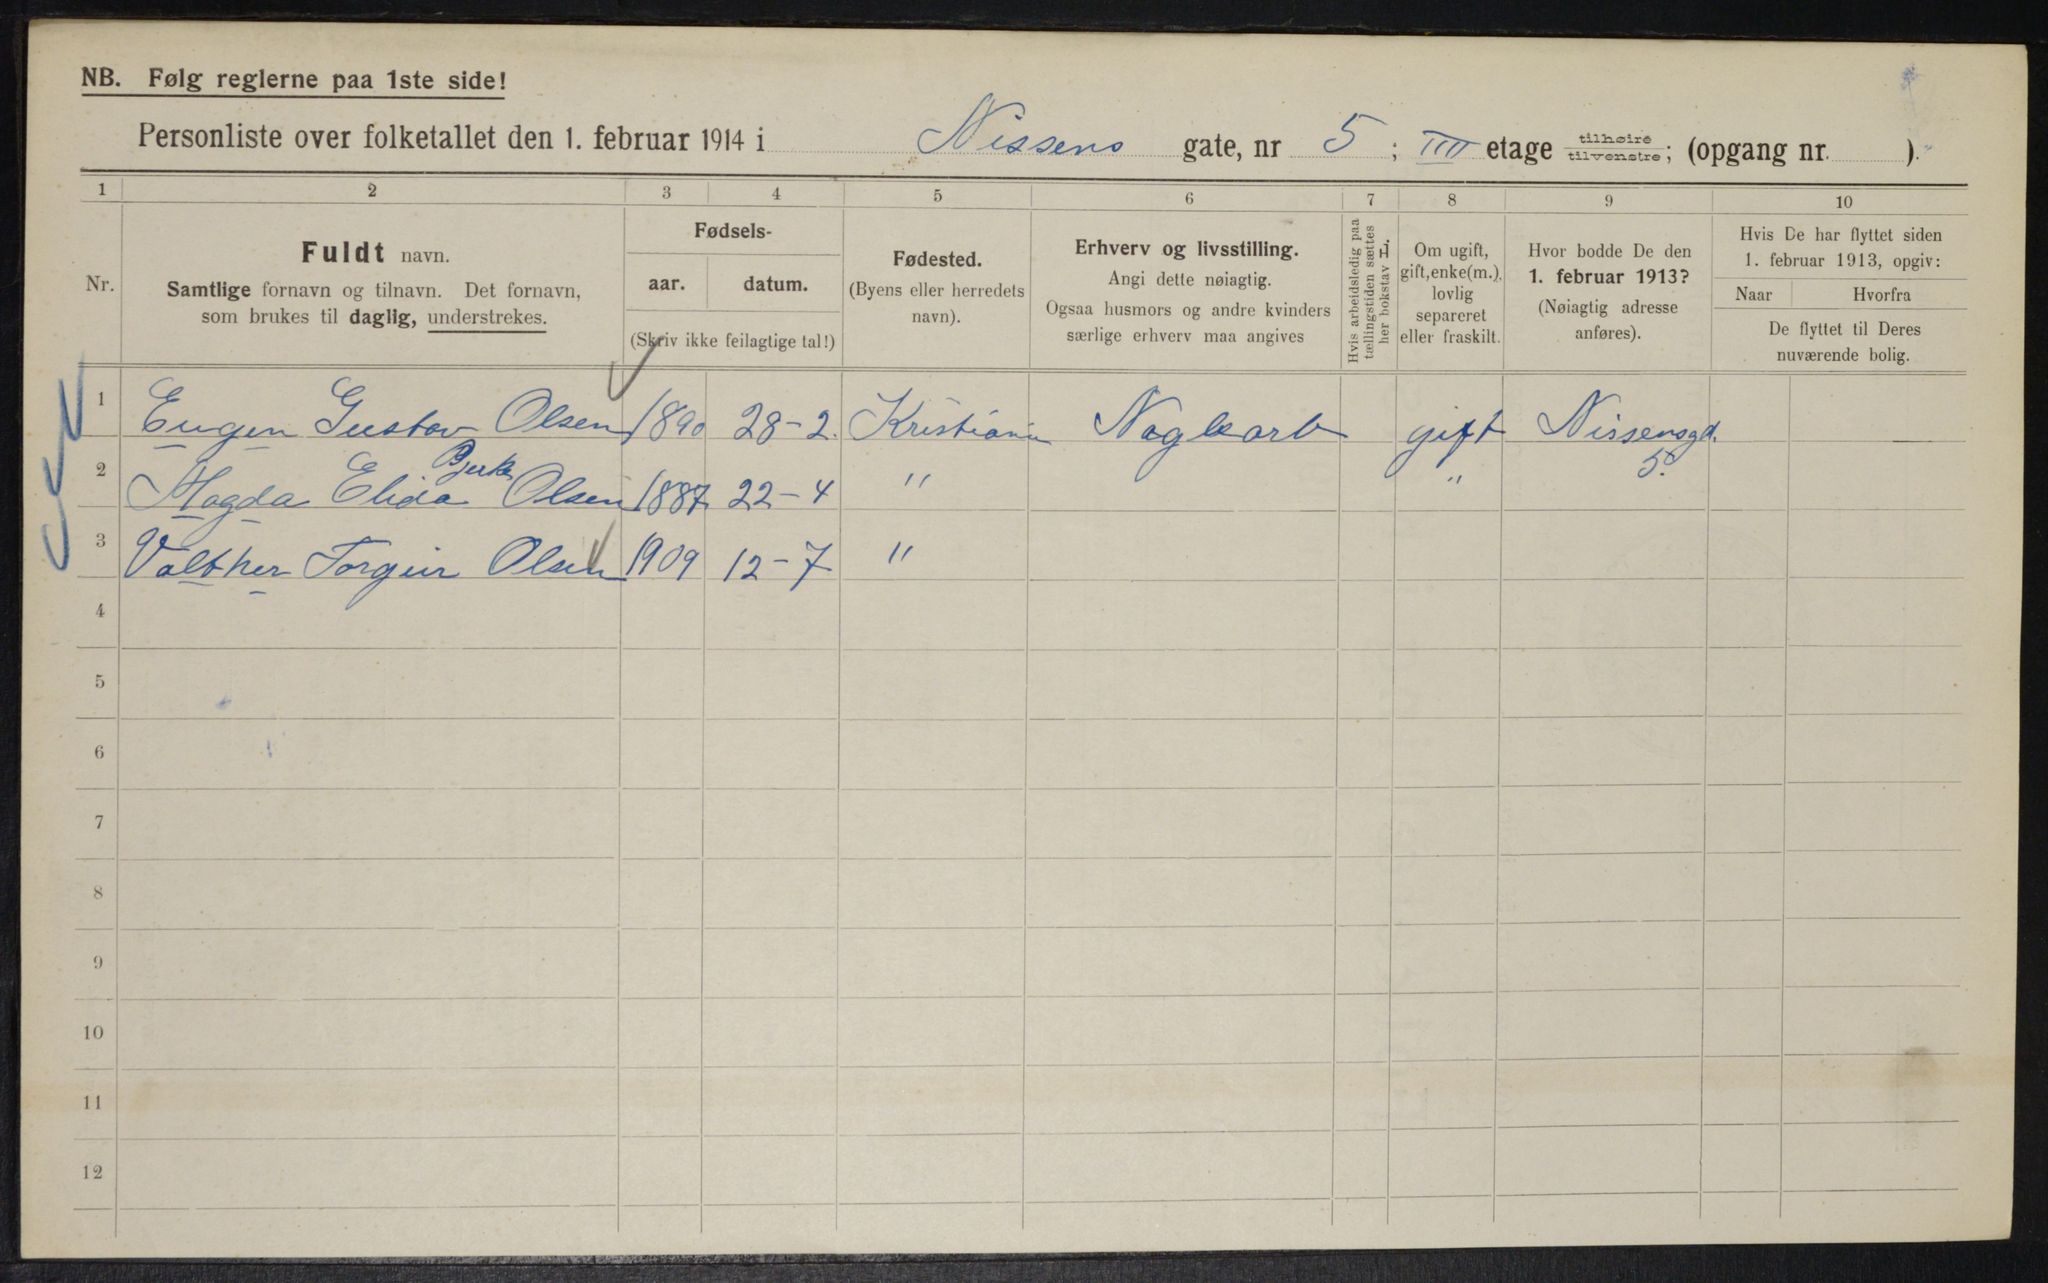 NB. Følg reglerne paa 1ste side!
Personliste over folketallet den 1. februar 1914 i Nissens gate, nr 5; IIII etage tilhøire tilvenstre; (opgang nr. ).
1 2 3 4 5 6 7 8 9 10
Nr.
Fuldt navn.
Samtlige fornavn og tilnavn. Det fornavn,
som brukes til daglig, understrekes.
Fødsels-
aar. datum.
(Skriv ikke feilagtige tal!)
Fødested.
(Byens eller herredets
navn).
Erhverv og livsstilling.
Angi dette nøiagtig.
Ogsaa husmors og andre kvinders
særlige erhverv maa angives
Hvis arbeidsledig paa
tællingstiden sættes
her bokstav L.
Om ugift,
gift, enke(m.),
lovlig
separeret
eller fraskilt.
Hvor bodde De den
1. februar 1913?
(Nøiagtig adresse
anføres).
Hvis De har flyttet siden
1. februar 1913, opgiv:
Naar Hvorfra
De flyttet til Deres
nuværende bolig.
1 Eugen Gustav Olsen 1890 28-2. Kristiania gift Nissensgd.
5.
Bjerke
2 Magda Elida Olsen 1887 22-4 " "
3 Valther Torgeir Olsen 1909 12-7 "
4
5
6
7
8
9
10
11
12